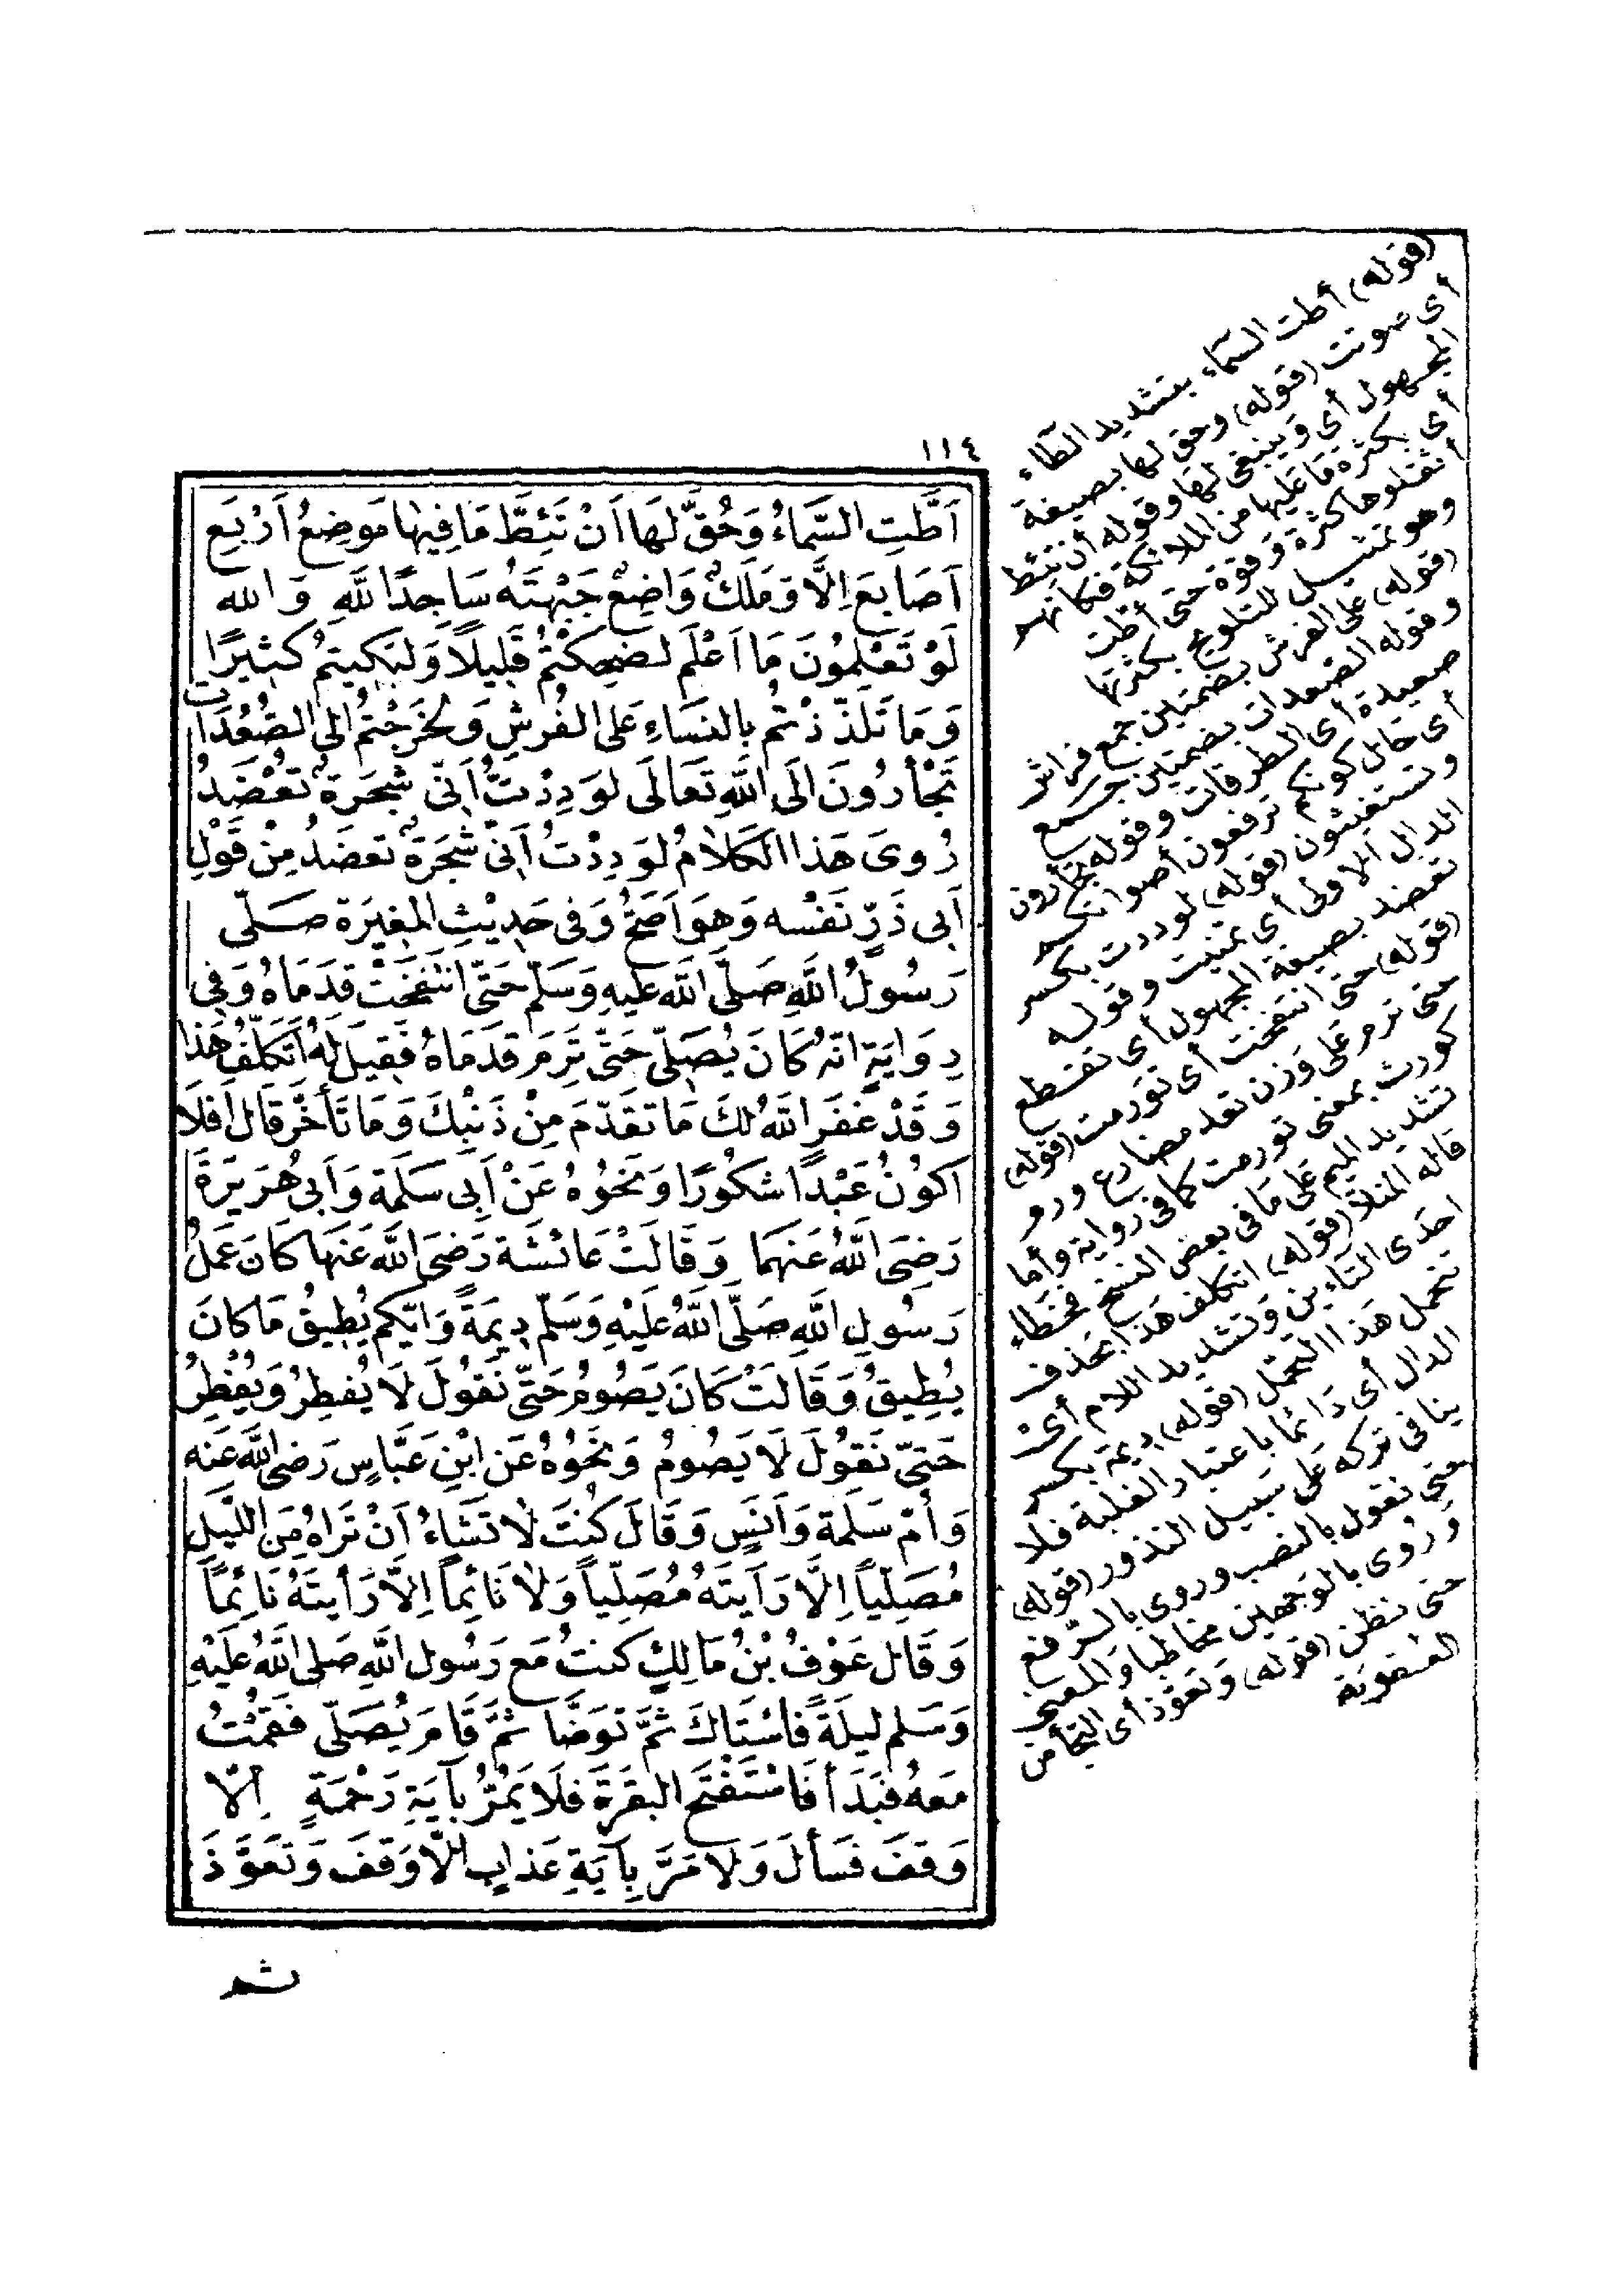 ١١٤
اَطَّتِ السَّمَاءُ وَحُقَّ لَهَا اَنْ تَئِطَّ مَا فِيهَا مَوضِعُ اَرْبَعِ
اَصَابِعَ اِلَّا وَمَلَكٌ وَاضِعٌ جَبْهَتَهُ سَاجِدًا لِلَّهِ وَاللهِ
لَوْ تَعْلَمُونَ مَا اَعْلَم لضحِكْتُمْ قَلِيلًا وَلبَكَيتمُ كَثِيرًا
وَمَا تَلَذَّذْتُمْ بِالنسَاءِ عَلَى الفُرشِ وَلخَرَجْتُمْ اِلَى الصُّعُدَاتِ
تَجْأَرُونَ اِلَى اللَّهِ تَعَالَى لَوَدِدْتُ اَنِّى شَجَرَةٌ تُعْضَدُ
رُوِىَ هَذَا الكَلَامُ لَوَدِدْتُ اَنِّى شَجَرَةٌ تعضَدُ مِنْ قَوْلِ
اَبِى ذَرٍّ نَفْسِه وَهوَ اَصَحُّ وَفِى حَدِيْثِ المغِيَرَة صَلّى
رَسُولُ اللَّهِ صَلَّى اللَّه عَلَيهِ وَسَلّم حَتّى انتَفَخَتْ قدَمَاهُ وَفِى
رِوَايَةٍ انّهُ كَانَ يُصَلِّى حَتَّى تَرِمَ قدَمَاهُ فَقِيلَ لَهُ اَتَكَلَّفُ هَذا
وَقَدْ غفَرَ اللَّهُ لكَ مَا تقَدّمَ مِنْ ذَنبِكَ وَمَا تَأَخَّرَ قَالَ اَفلَا
اَكُونُ عَبْدًا شكُورًا وَنحْوُهُ عَنْ اَبِى سَلَمَة وَاَبِى هُرَيرَةَ
رَضِىَ اللَّهُ عَنهُمَا وَقَالَتْ عَائشَة رَضِىَ اللَّه عَنهَا كَانَ عَمَلُ
رَسُولِ اللَّهِ صَلَّى اللَّهُ عَلَيْهِ وَسَلّم دِيمَةً وَاَيّكم يُطِيقُ مَا كانَ
يُطِيقُ وَقَالَتْ كَانَ يَصُومُ حَتّى نَقُولَ لَا يُفطِرُ وَيُفْطِرُ
حَتىّ نَقُولَ لَا يَصُومُ وَنحْوُهُ عَن ابْنِ عَبَّاسٍ رَضى اللَّه عَنه
وَأُمّ سَلمَة وَاَنَسٍ وَقَالَ كُنتَ لَا تَشَاءُ اَنْ تَرَاهُ مِنَ اللَّيلِ
مُصَلِّياً اِلَّا رَاَيتَهُ مُصَلِّياً وَلَا نَائِماً اِلَّا رَأَيتَهُ نَائِمًا
وَقَال عَوْفُ بْنُ مَالِكٍ كنتُ مَع رَسُول اللَّهِ صَلى اللَّهُ عَلَيْهِ
وَسَلم ليلَةً فَاسْتَاكَ ثمَّ توَضّأ ثمَّ قَامَ يُصَلّى فَقمْتُ
معَهُ فبَدَأَ فَاسْتَفْتَحَ البقرَةَ فلَا يَمُرُّ بِآيَةِ رَحْمَةٍ اِلّا
وَقَفَ فسَأَلَ وَلَا مَرَّ بِآيَةِ عَذابٍ اِلّا وَقفَ وَتَعَوَّذَ
ثم
(قوله) أطت السّمآء بتشديد الطّاء
أى صوتت (قوله) وحق لها بصيغة
المجهول أى وينبغى لها وقوله أن تئط
أى بكثرة ما عليها من الملائكة فكانهم
أثقلوها كثرة وقوة حتى أطت
وهو تمثيل للتلويح بكثرتها
(قوله) على الفرش بضمتين جمع فراش
وقوله الصعدات بضمتين جمع
صعيدة أى الطرقات وقوله تجأرون
أى حال كونكم ترفعون أصواتكم
وتستغيثون (قوله) لوددت بكسر
الدال الاولى أى تمنيت وقوله
تعضد بصيغة المجهول أى تقطع
(قوله) حتى انتفخت أى تورمت (قوله)
حتى ترم على وزن تعد مضارع ورم
كورث بمعنى تورمت كما فى رواية وأما
تشديد الميم على ما فى بعض النسخ فخطاء
قاله المنلا (قوله) اتكلف هذا بحذف
احدى التاءين وتشديد اللام أى
تتحمل هذا التحمل (قوله) ديمة بكسر
الدال أى دائما باعتبار الغلبة فلا
ينافى تركه على سبيل النذور (قوله)
حتى نقول بالنصب وروى بالرفع
وروى بالوجهين مخاطبا والمعنى
حتى نظن (قوله) وتعوّذ أى التجأ من
العقوبة